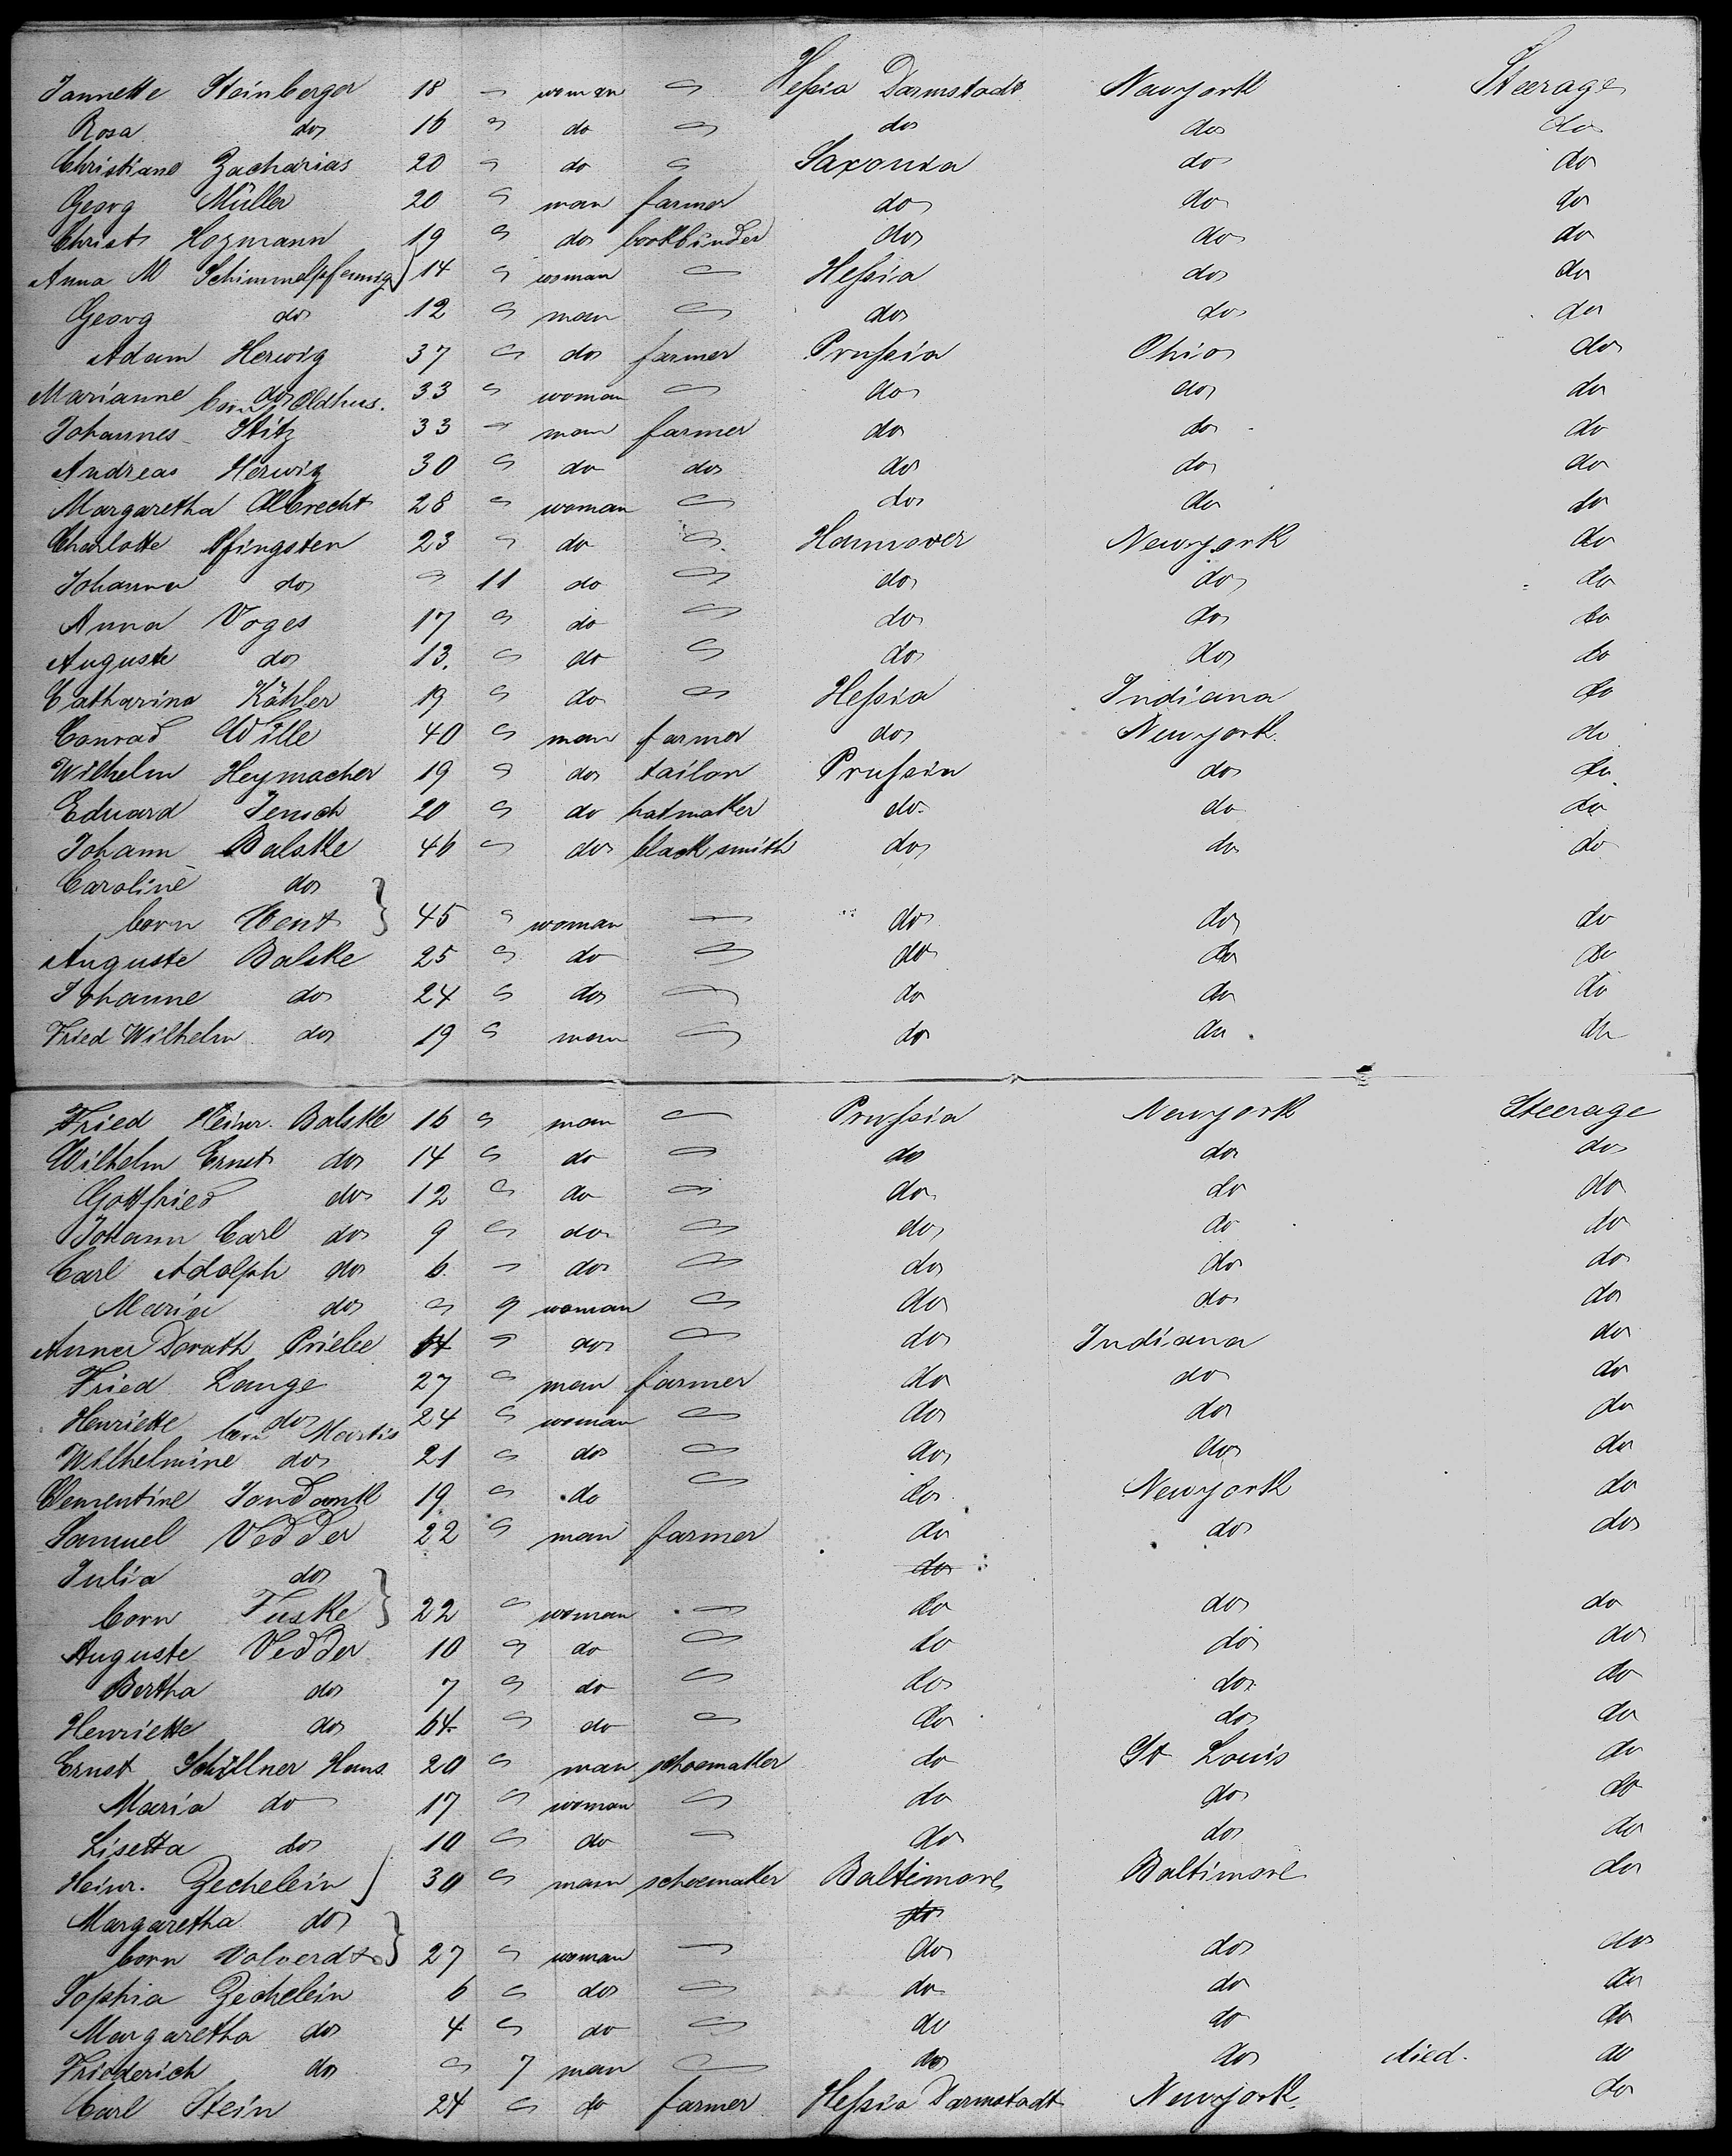 Jannette Steinberger 18 woman Hessia Darmstadt Newyork Steerage
Rosa do 16 do do do do
Christiane Zacharias 20 do Saxonia do do
Georg Müller 20 man farmer do do do
Christ Hozmann 19 do bookbinder do do do
Anna M Schimmelpfennig 14 woman Hessia do do
Georg do 12 man do do do
Adam Herwig 37 do farmer Prussia Ohio do
Marianne do born Oldhus. 33 woman do do do
Johannes Stitz 33 man farmer do do do
Andreas Herwig 30 do do do do do
Margaretha Albrecht 28 woman do do do
Charlotte Pfingsten 23 do Hannover Newyork do
Johanna do 11 do do do do
Anna Voges 17 do do do do
Auguste do 13. do do do do
Catharina Köhler 19 do Hessia Indiana do
Conrad Wille 40 man farmer do Newyork do
Wilhelm Heymacher 19 do tailor Prussia do do
Eduard Jensch 20 do hatmaker do do do
Johann Balske 46 do black smith do do do
Caroline do
born Went 45 woman do do do
Auguste Balske 25 do do do do
Johanne do 24 do do do do
Fried Wilhelm do 19 man do do do
Fried Heinr. Balske 16 man Prussia Newyork Steerage
Wilhelm Ernst do 14 do do do do
Gottfried do 12 do do do do
Johann Carl do 9 do do do do
Carl Adolph do 6. do do do do
Maria do 9 woman do do do
Anna Dorath Prielee do do Indiana do
Fried Lange 27 man farmer do do do
Henriette do born Martis 24 woman do do do
Wilhelmine do 21 do do do do
Clementine 19 do do Newyork do
Samuel Vedder 22 man farmer do do do
Julia do do
born Tuske 22 woman do do do
Auguste Vedder 10 do do do do
Bertha do 7 do do do do
Henriette do 64 do do do do
Ernst Schillner Hans 20 man schoemaker do St Louis do
Maria do 17 woman do do do
Lisetta do 10 do do do do
Heinr. Zechelein 30 man schoemaker Baltimore Baltimore do
Margaretha do do
born Volverdt 27 woman do do do
Sophia Zechelein 6 do do do do
Margaretha do 4 do do do do
Friederich do 7 man do do died. do
Carl Stein 24 do farmer Hessia Darmstadt Newyork. do